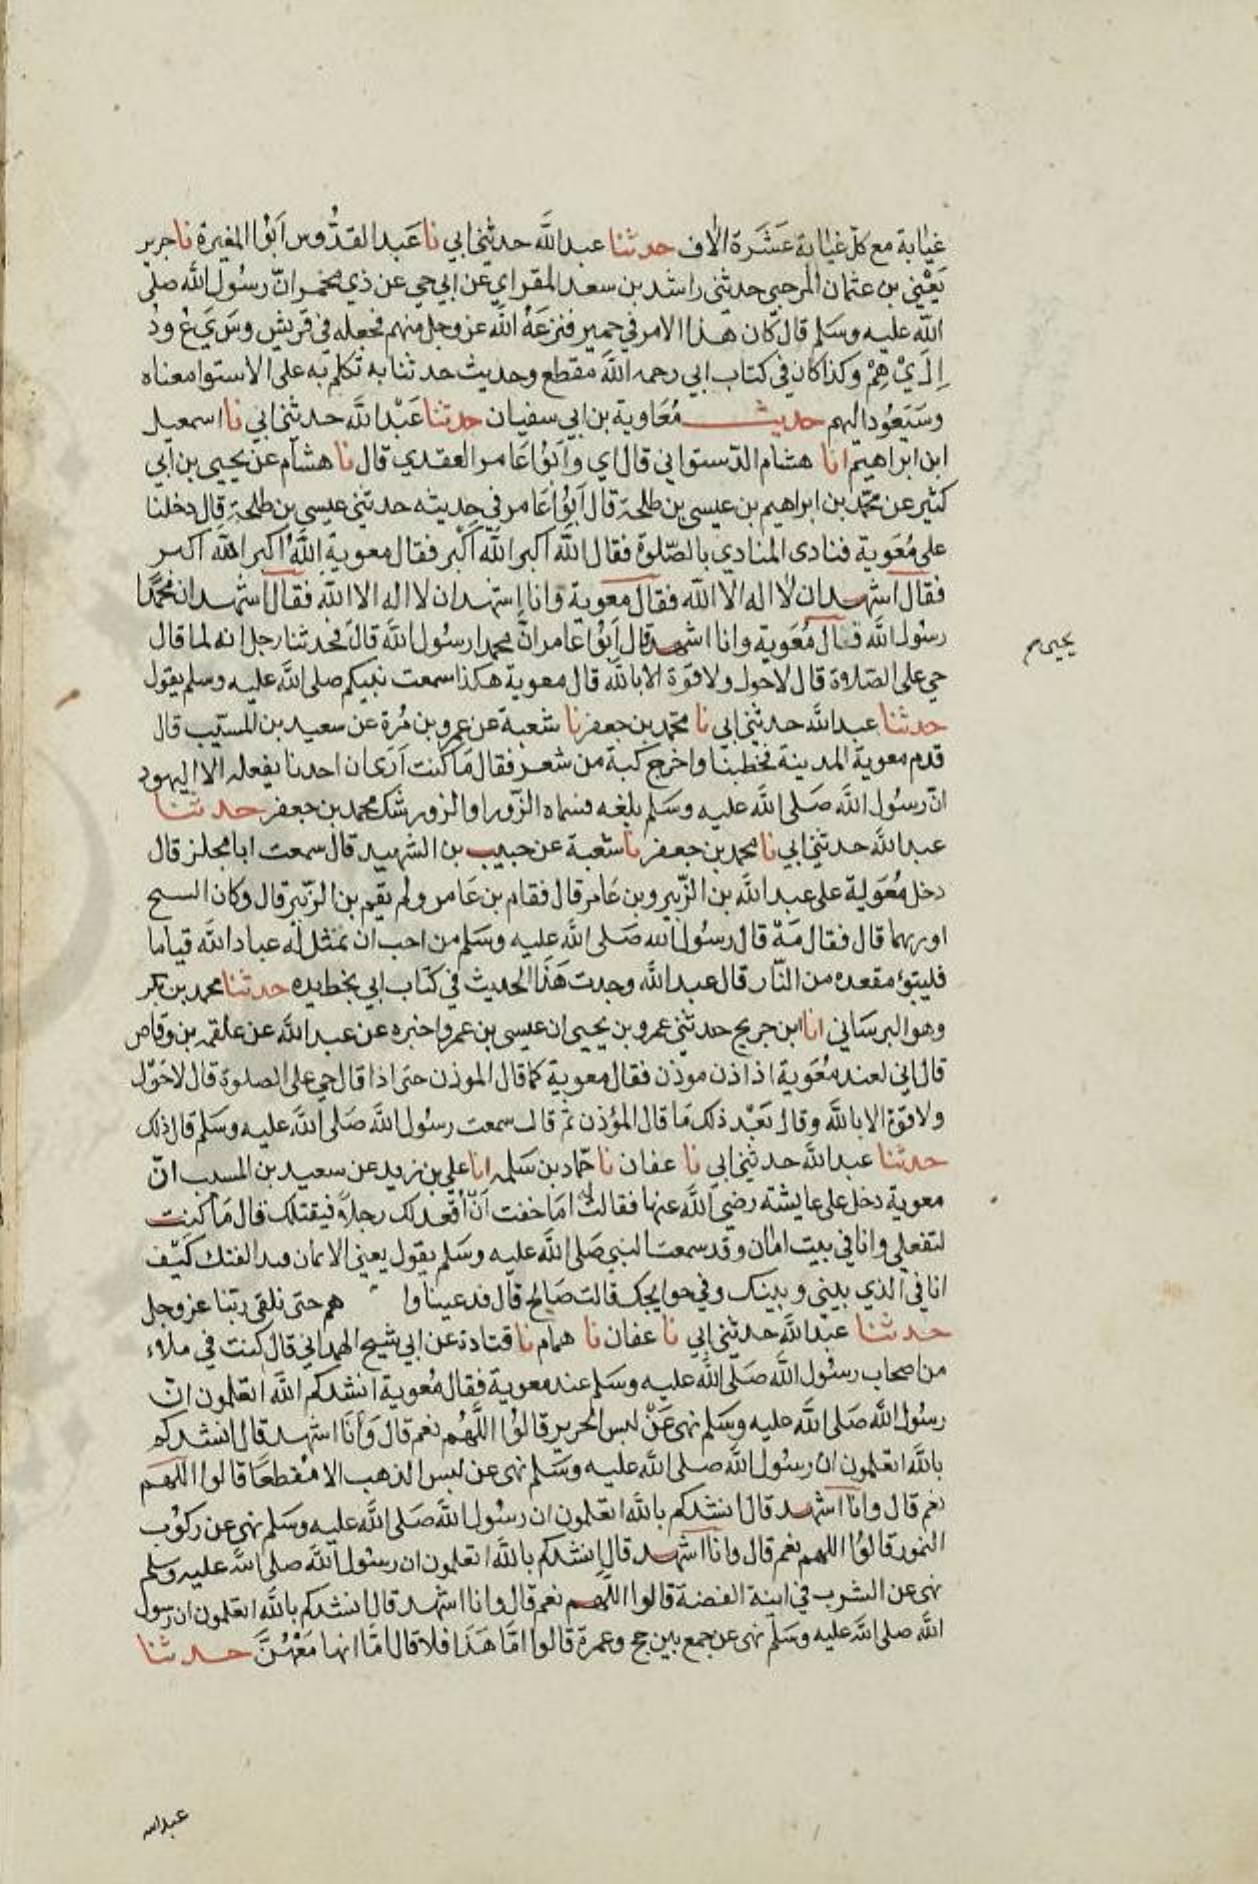 غيابة مع كل غيابة عشرة الاف حدثنا عبد الله حدثني ابي نا عبد القدوس ابوا المغيرة نا جرير
يعني بن عثمان الرحبي حدثني راشد بن سعد المقراي عن ابي حي عن ذي مخمر ان رسول الله صلى
الله عليه وسلم قال كان هذا الامر في حمير فنزعه الله عز وجل منهم فجعله في قريش و س ي ع و د
ا ل ي ه م وكذا كان في كتاب ابي رحمه الله مقطع وحديث حدثنا به تكلم به على الاستوا معناه
وسيعود اليهم حديث معاوية بن ابي سفيان حدثنا عبد الله حدثني ابي نا اسمعيل
ابن ابراهيم انا هشام الدستواني قال اي وابوا عامر العقدي قال نا هشام عن يحيى بن ابي
كثير عن محمد بن ابراهيم بن عيسى بن طلحة قال ابوا عامر في حديثه حدثني عيسى بن طلحة قال دخلنا
على معوية فنادى المنادي بالصلوة فقال الله اكبر الله اكبر فقال معوية الله اكبر الله اكبر
فقال اشهد ان لا اله الا الله فقال معوية وانا اشهد ان لا اله الا الله فقال اشهد ان محمدا
رسول الله فقال معوية وانا اشهد قال ابوا عامر ان محمدا رسول الله قال فحدثنا رجل انه لما قال
يحيى م
حي على الصلاة قال لا حول ولا قوة الا بالله قال معوية هكذا سمعت نبيكم صلى الله عليه وسلم يقول
حدثنا عبد الله حدثني ابي نا محمد بن جعفر نا شعبة عن عمرو بن مرة عن سعيد بن المسيب قال
قدم معوية المدينة فخطبنا واخرج كبة من شعر فقال ما كنت ارى ان احدنا يفعله الا اليهود
ان رسول الله صلى الله عليه وسلم بلغه فسماه الزورا والزور شك محمد بن جعفر حدثنا
عبد الله حدثني ابي نا محمد بن جعفر نا شعبة عن حبيب بن الشهيد قال سمعت ابا مجلز قال
دخل معوية على عبد الله بن الزبير وبن عامر قال فقام بن عامر ولم يقم بن الزبير قال وكان السيح
اوربهما قال فقال مه قال رسول الله صلى الله عليه وسلم من احب ان تمثل له عباد الله قياما
فليتبؤ مقعده من النار قال عبد الله وجدت هذا الحديث في كتاب ابي بخط يده حدثنا محمد بن بكر
وهو البرساني انا ابن جريج حدثني عمرو بن يحيى ان عيسى بن عمرو اخبره عن عبد الله عن علقمه بن وقاص
قال اني لعند معوية اذ اذن موذن فقال معوية كما قال الموذن حتى اذا قال حي على الصلوة قال لا حول
ولا قوة الا بالله وقال بعد ذلك ما قال المؤذن ثم قال سمعت رسول الله صلى الله عليه وسلم قال ذلك
حدثنا عبد الله حدثني ابي نا عفان نا حماد بن سلمه انا علي بن زيد عن سعيد بن المسيب ان
معوية دخل على عايشة رضي الله عنها فقالت له اما خفت ان اقعد لك رجلا فيقتلك قال ما كنت
لتفعلي وانا في بيت امان وقد سمعت النبي صلى الله عليه وسلم يقول يعني الايمان قيد الفتك كيف
انا في الذي بيني وبينك وفي حوايجك قالت صالح قال فدعينا وا هم حتى نلقى ربنا عز وجل
حدثنا عبد الله حدثني ابي نا عفان نا همام نا قتادة عن ابي شيخ الهمداني قال كنت في ملاء
من اصحاب رسول الله صلى الله عليه وسلم عند معوية فقال معوية انشدكم الله اتعلمون ان
رسول الله صلى الله عليه وسلم نهى عن لبس الحرير قالوا اللهم نعم قال وانا اشهد قال انشدكم
بالله اتعلمون ان رسول الله صلى الله عليه وسلم نهى عن لبس الذهب الا مقطعا قالوا اللهم
نعم قال وانا اشهد قال انشدكم بالله اتعلمون ان رسول الله صلى الله عليه وسلم نهى عن ركوب
النمور قالوا اللهم نعم قال وانا اشهد قال انشدكم بالله اتعلمون ان رسول الله صلى الله عليه وسلم
نهى عن الشرب في انية الفضة قالوا اللهم نعم قال وانا اشهد قال انشدكم بالله اتعلمون ان رسول
الله صلى الله عليه وسلم نهى عن جمع بين حج وعمرة قالوا اما هذا فلا قال اما انها معهن حدثنا
عبد الله